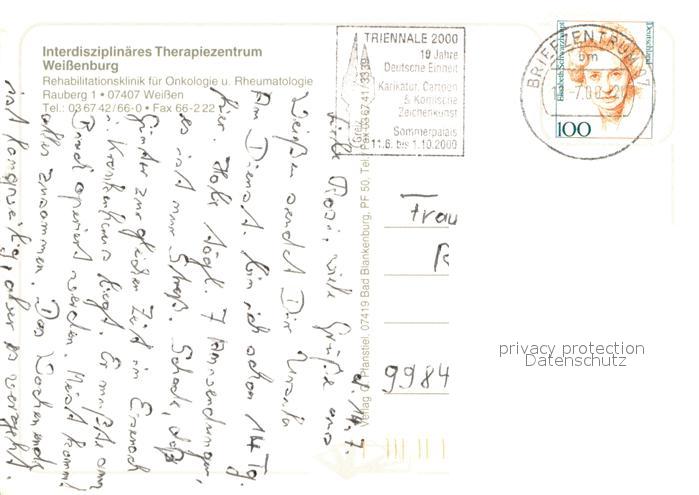 Interdisziplinäres Therapiezentrum
Weißenburg
Rehabilitationsklinik für Onkologie u. Rheumatologie
Rauberg 1 • 07407 Weißen
Tel.: 03 67 42 / 66-0 • Fax 66-2 22
TRIENNALE 2000
10 Jahre
Deutsche Einheit
Karikatur, Cartoon
& Komische
Zeichenkunst
Sommerpalais
11.6. bis 1.10.2000
Greiz
BRIEFZENTRUM 07
bm
Elisabeth Schwarzhaupt
Deutschland
100
d. 14.7.
Liebe Rosi, viele Grüße aus
Weißen sendet Dir Ursula
Am Dienst. bin ich schon 14 Tg.
hier. Habe tägl. 7 Anwendungen,
es ist nur Streß. Schade, daß
Günter zur gleichen Zeit in Eisenach
i. Krankenhaus liegt. Er mußte am
Bruch operiert werden. Meist kommt
alles zusammen. Das Wochenende
ist langweilig, aber es vergeht.
Verlag G. Planstiel, 07419 Bad Blankenburg, PF 50, Tel./Fax 036741/3339
Frau
R
9984
privacy protection
Datenschutz